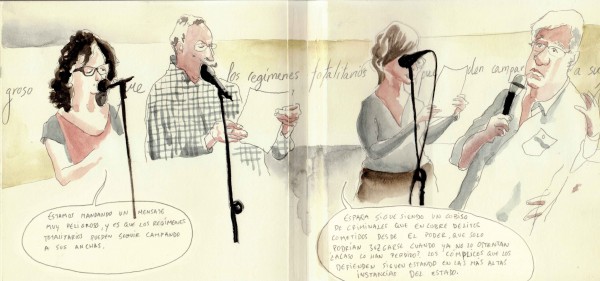 groso que los regímenes totalitarios pueden campar a su
ESTAMOS MANDANDO UN MENSAJE
MUY PELIGROSO, Y ES QUE LOS REGÍMENES
TOTALITARIOS PUEDEN SEGUIR CAMPANDO
A SUS ANCHAS.
ESPAÑA SIGUE SIENDO UN
DE CRIMINALES QUE ENCUBRE DELITOS
COMETIDOS DESDE EL PODER, QUE SOLO
PODRÍAN JUZGARSE CUANDO YA NO LO OSTENTAN
¿ACASO LO HAN PERDIDO? LOS CÓMPLICES QUE LOS
DEFIENDEN SIGUEN ESTANDO EN LAS MÁS ALTAS
INSTANCIAS DEL ESTADO.